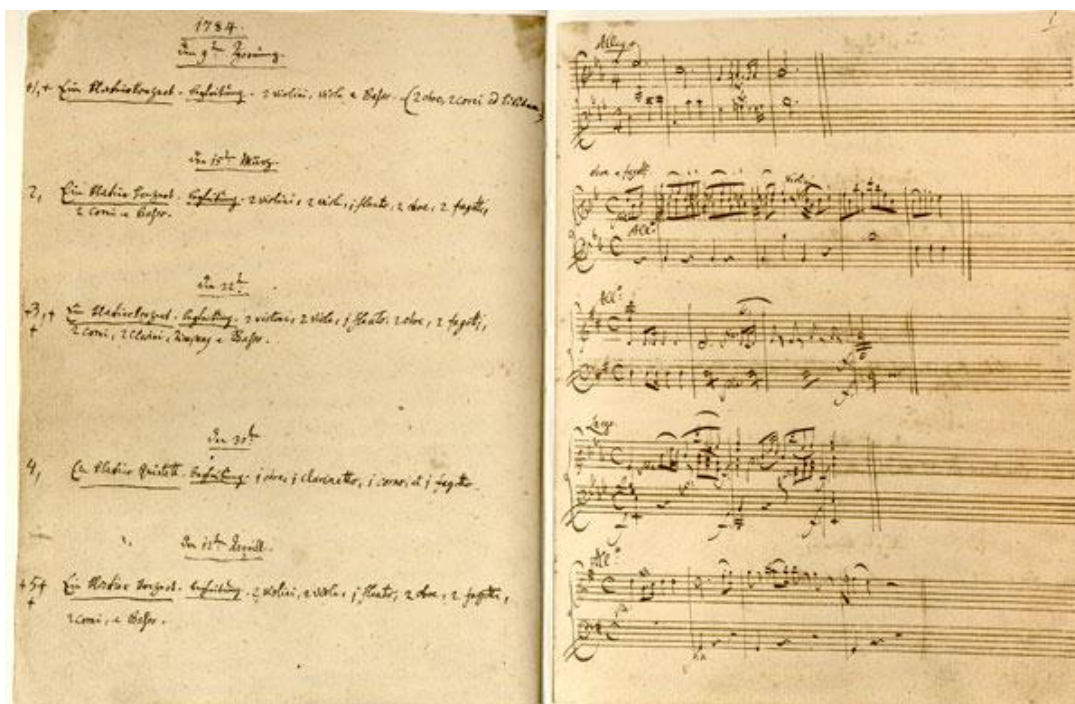 1784.
Den 9ten Hornung.
1, + Ein Klavierkonzert. Begleitung. 2 violini, viola e Baßo. (2 oboe, 2 corni ad libitum)
Den 15ten März.
2, Ein Klavier Konzert. Begleitung. 2 violini, 2 viole, j flauto, 2 oboe, 2 fagotti,
2 corni e Baßo.
Den 22ten
+3,+ Ein Klavierkonzert. Begleitung. 2 violini, 2 viole, j flauto, 2 oboe, 2 fagotti,
+ 2 corni, 2 Clarini, Timpany e Baßo.
Den 30ten
4, Ein Klavier Quintett. Begleitung. j oboe, j clarinetto, j corno, et j fagotto.
Den 12ten Aprill.
+5+ Ein Klavier Konzert. Begleitung. 2 violini, 2 viole, j flauto, 2 oboe, 2 fagotti,
+ 2 corni, e Baßo.
1
Allegro
oboe e fagotti violini
All:o
All:o
Largo.
All:o